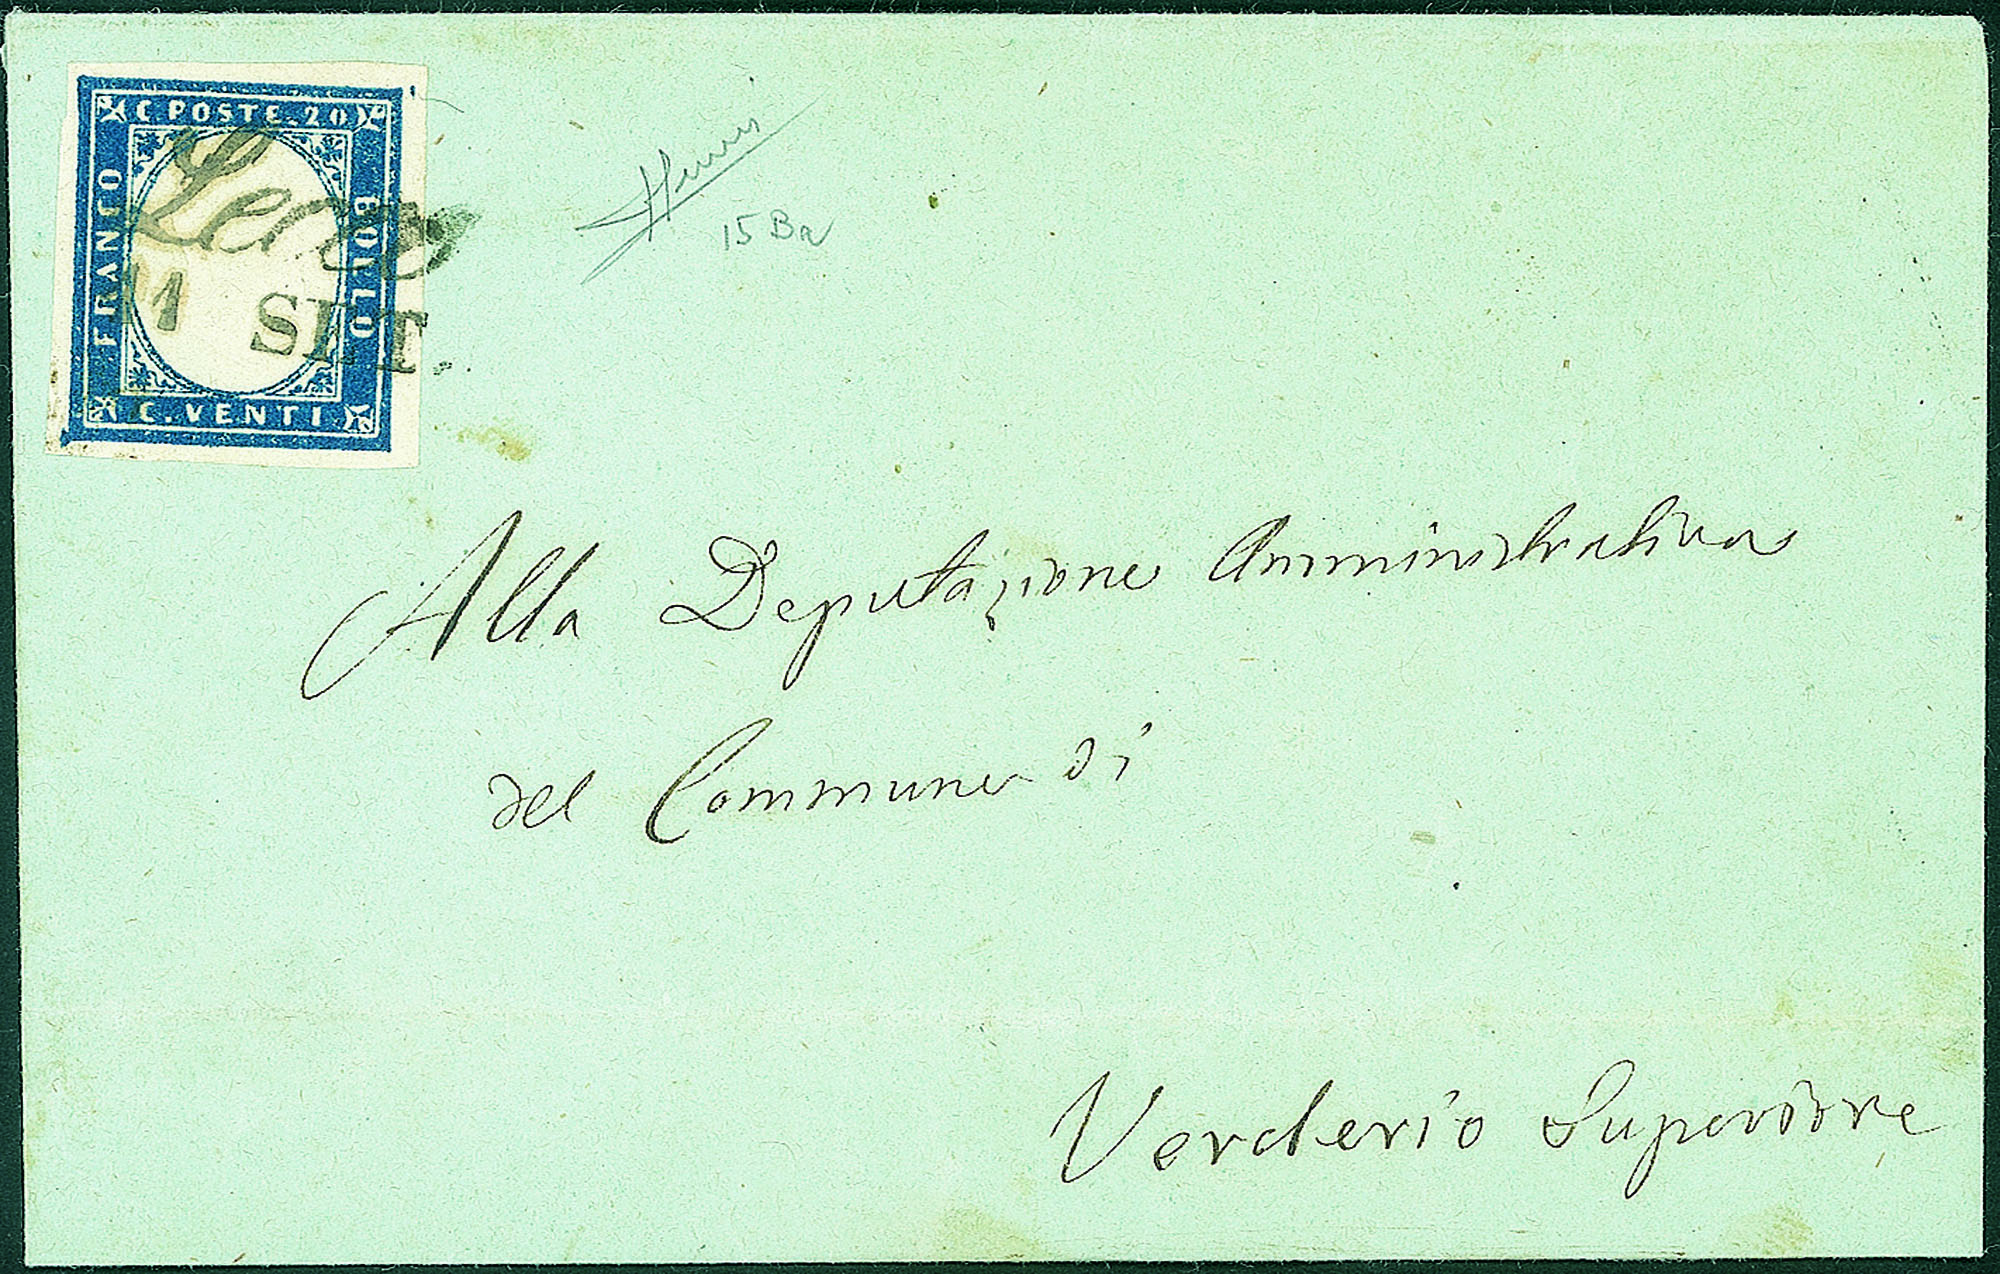 C. POSTE. 20
FRANCO
BOLLO
C. VENTI
11 SET.
15 Ba
Alla Deputazione Amministrativa
del Commune di
Verderio Superiore